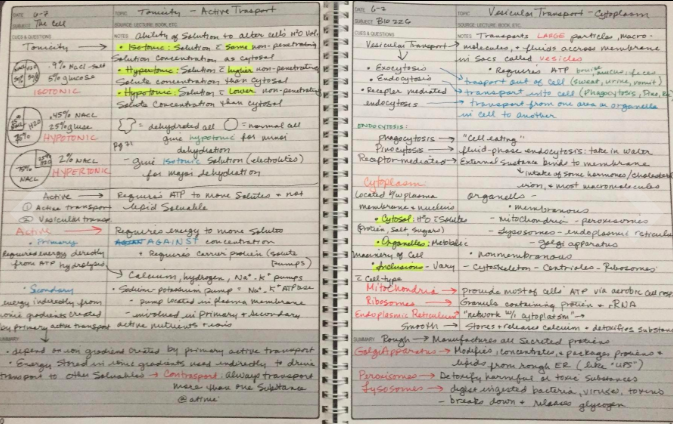 DATE 6-7
TOPIC Tonicity - Active Transport
SUBJECT The Cell
SOURCE: LECTURE, BOOK, ETC.
CUES & QUESTIONS
NOTES Ability of Solution to alter cells H2O Vol.
Tonicity
• Isotonic: Solution c̄ Same non-penetrating
Solution concentration as cytosal
.9% NaCl - salt
5% glucose
ISOTONIC
• Hypertonic: Solution c̄ higher non-penetrating
Solute concentration than cytosal
• Hypotonic: Solution c̄ Lower non-penetrating
Solute Concentration than cytosal
.45% NaCL
HYPOTONIC
= dehydrated cell = normal cell
give hypotonic for minor
dehydration
2% NaCL
HYPERTONIC
- give isotonic Solution (electrolytes)
for major dehydration
Active → Requires ATP to move Solutes + not
lipid Soluable
① Active Transport
② Vesicular transport
Active → Requires energy to move Solutes
AGAINST concentration
• Primary
• Requires Carrier protein (solute pumps)
Requires energy directly
from ATP hydrolysis
→ Calcium, hydrogen, Na+ K+ pumps
• Secondary
• Sodium-potassium pump = Na+ K+ ATPase
energy indirectly from
ionic gradients created
by primary active transport
- pump located in plasma membrane
- involved in primary + secondary
active nutrients + ions
SUMMARY
• depend on ion gradient created by primary active transport
• Energy Stored in ionic gradients used indirectly to drive
transport to other Soluables → Contransport: always transport
more than one Substance
@ a time
DATE 6-7
TOPIC Vesicular Transport - Cytoplasm
SUBJECT Bio 226
SOURCE: LECTURE, BOOK, ETC.
CUES & QUESTIONS
NOTES Transports LARGE particles, macro-
Vesicular Transport → molecules, + fluids accross membrane
in Sacs called vesicles
• Requires ATP
• Exocytosis → transport out of cell (sweat, urine, vomit)
• Endocytosis → transport into cell
• Receptor mediated → transport from one area or organelle
endocytosis
in cell to another
ENDOCYTOSIS:
Phagocytosis → "Cell eating"
Pinocytosis → fluid-phase endocytosis: take in water
Receptor-mediated → External Sustance binds to membrane
intake of some hormones/cholesterol
iron, + most macromolecules
Cytoplasm
Located b/w plasma
membrane + nucleus
organelles
• membranous
• Cytosol: H2O c̄ Solutes
(protein, Salt, Sugars)
- mitochondria - peroxisomes
- lysosomes - endoplasmic reticulum
• Organelles: Metabolic
machinery of Cell
- golgi apparatus
• nonmembranous
• Inclusions - Vary
c̄ Cell-type
- Cytoskeleton - Centrioles - Ribosomes
Mitochondria → Provide most of cells' ATP via aerobic cell resp
Ribosomes → Granuls containing protein + rRNA
Endoplasmic Reticulum → "network w/i cytoplasm" →
Smooth → Stores + release calcium + detoxifies substances
SUMMARY Rough → Manufactures all Secreted proteins
Golgi Apparatus → Modifies, concentrates, + packages proteins +
lipids from rough ER (like "UPS")
Peroxisomes → Detoxify harmful or toxic Substances
Lysosomes → digest ingested bacteria, viruses, toxins
- breaks down + releases glycogen